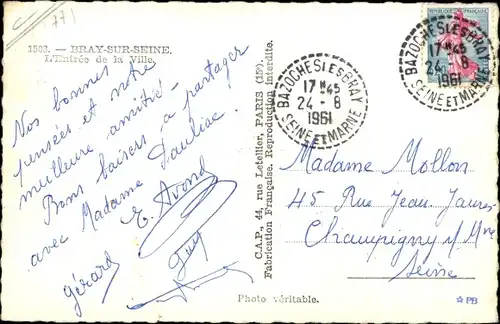 771
1503. — BRAY-SUR-SEINE.
L'Entrée de la Ville.
Nos bonnes
pensées et notre
meilleure amitié -
Bons baisers à partager
avec Madame Pauliac.
E. Avond
Gérard
Guy
C.A.P., 44, rue Letellier, PARIS (15e).
Fabrication Française. Reproduction interdite.
Photo véritable.
REPUBLIQUE FRANÇAISE
BAZOCHES LES BRAY
17 H 45
24 - 8
1961
SEINE ET MARNE
BAZOCHES LES BRAY
17 H 45
24 - 8
1961
SEINE ET MARNE
Madame Mollon
45 Rue Jean Jaurès
Champigny s/ Mne
Seine
PB